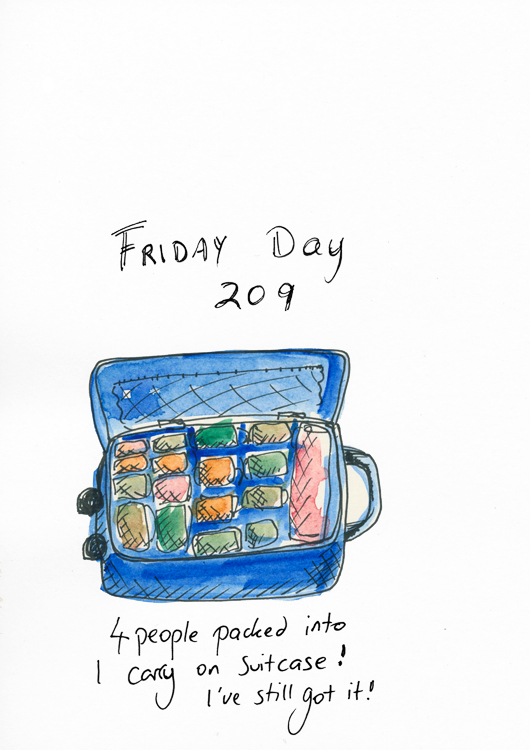 FRIDAY Day
209
4 people packed into
1 carry on suitcase!
I've still got it!